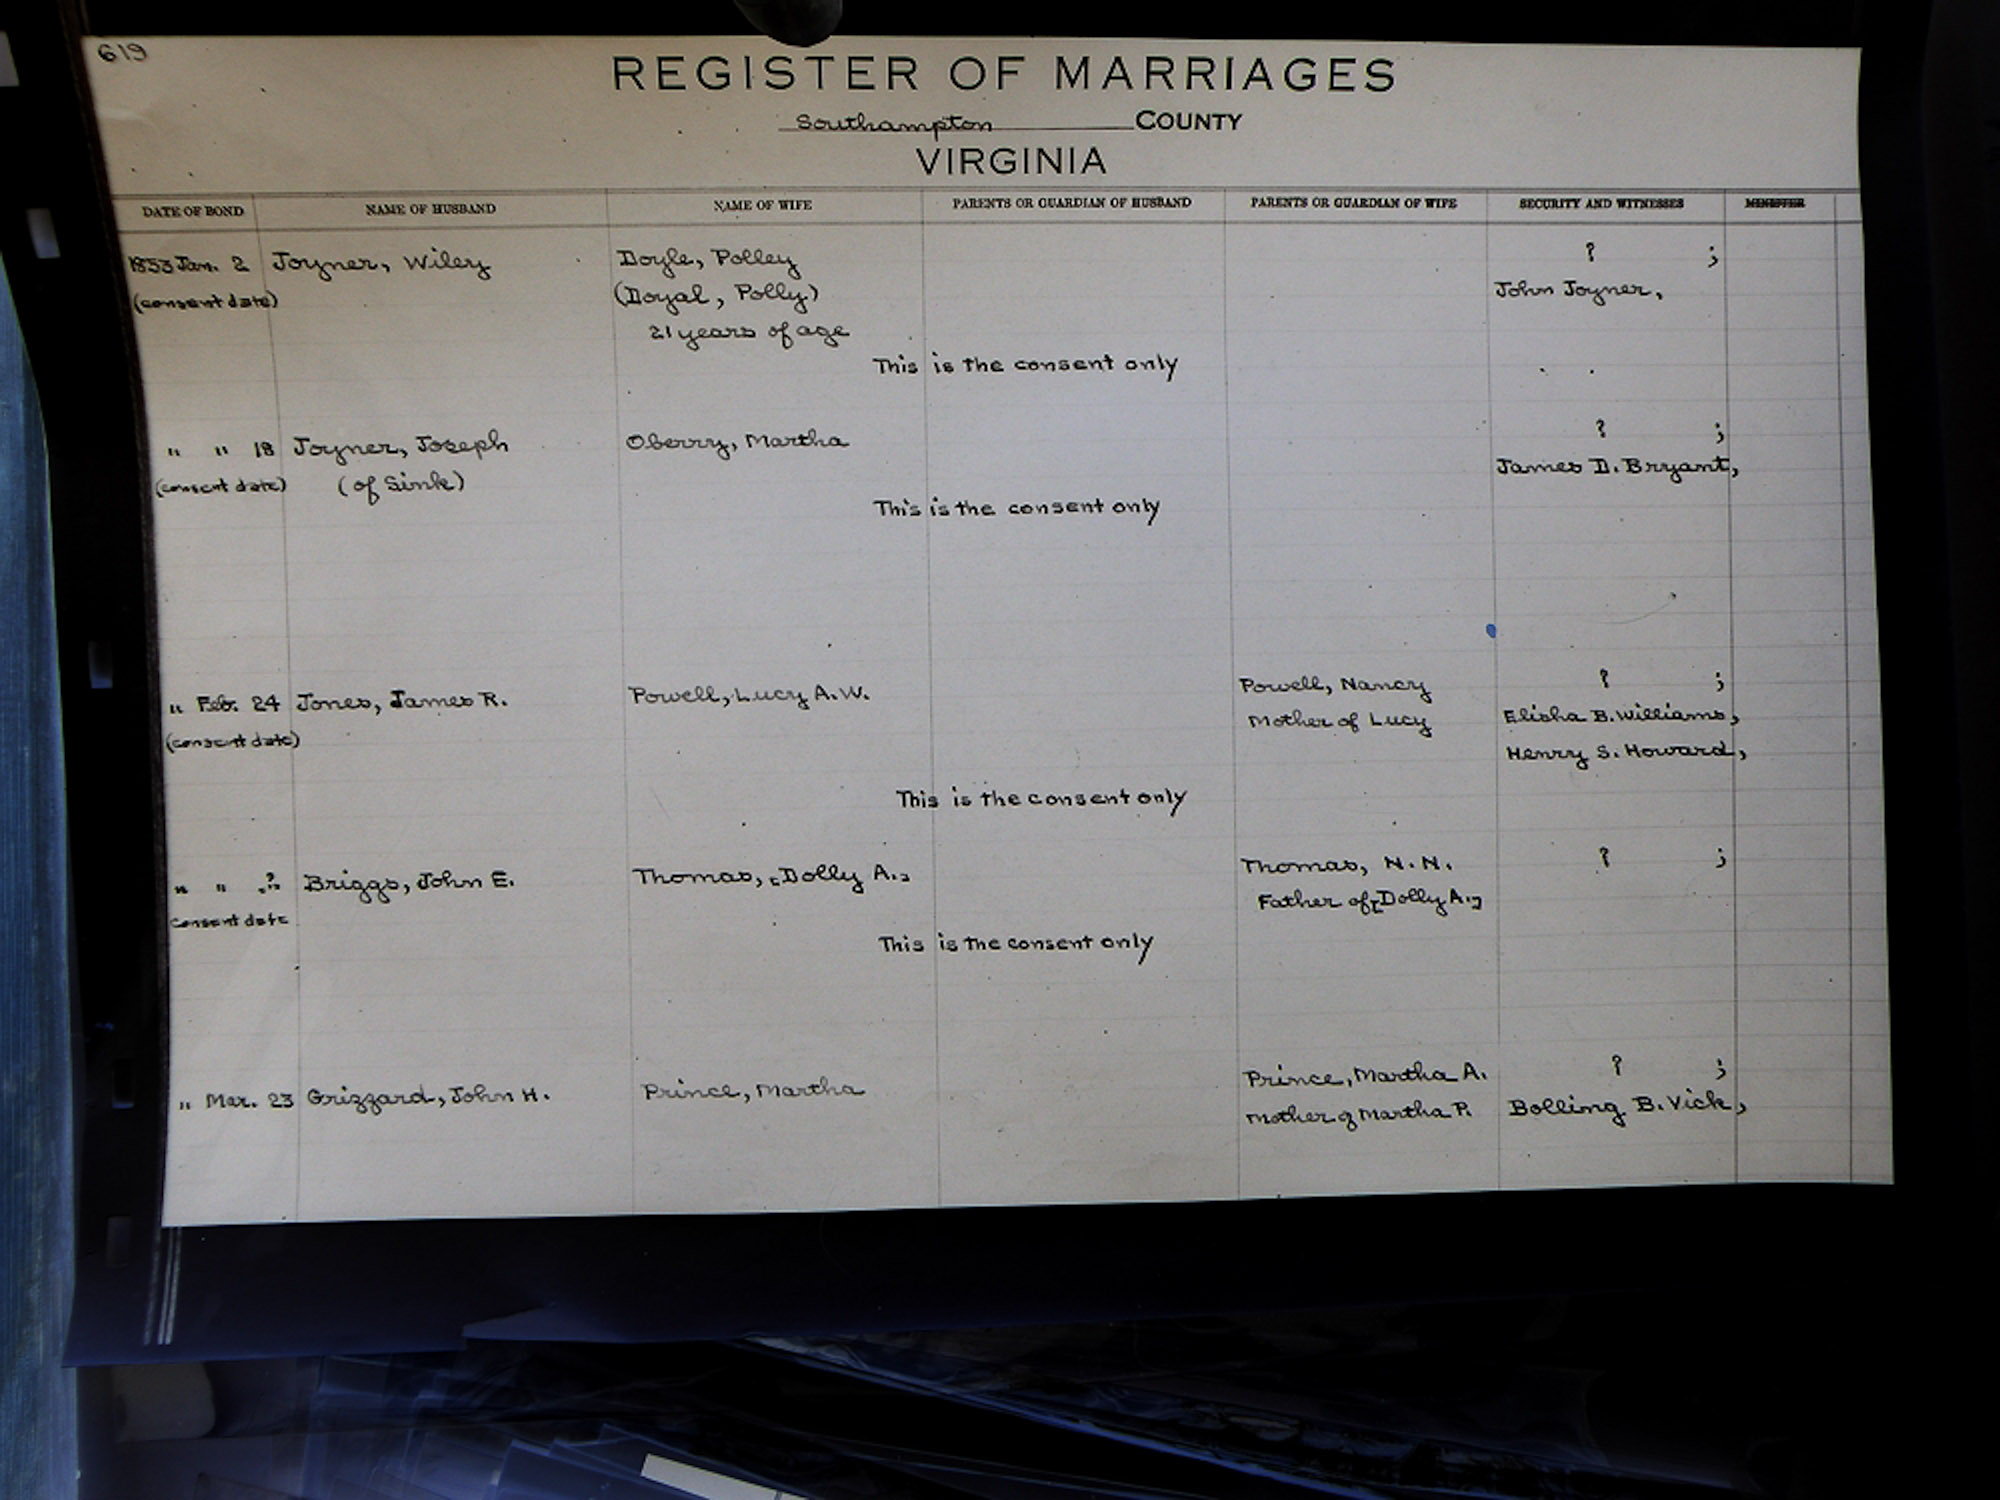 619
REGISTER OF MARRIAGES
Southampton COUNTY
VIRGINIA
DATE OF BOND NAME OF HUSBAND NAME OF WIFE PARENTS OR GUARDIAN OF HUSBAND PARENTS OR GUARDIAN OF WIFE SECURITY AND WITNESSES MINISTER
1853 Jan. 2 Joyner, Wiley Doyle, Polley ? ;
(consent date) (Doyal, Polly) John Joyner,
21 years of age
This is the consent only
" " 18 Joyner, Joseph Oberry, Martha ? ;
(consent date) (of Sink) James D. Bryant,
This is the consent only
" Feb. 24 Jones, James R. Powell, Lucy A.W. Powell, Nancy ? ;
(consent date) Mother of Lucy Elisha B. Williams,
Henry S. Howard,
This is the consent only
" " ? Briggs, John E. Thomas, [Dolly A.] Thomas, N.N. ? ;
Consent date Father of [Dolly A.]
This is the consent only
" Mar. 23 Grizzard, John H. Prince, Martha Prince, Martha A. ? ;
Mother of Martha P. Bolling B. Vick,